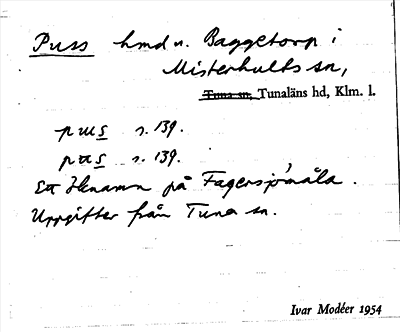 Puss hmd u. Baggetorp i
Misterhults sn,
Tuna sn, Tunaläns hd, Klm. l.
pus s. 139.
s. 139.
Ett öknamn på Fagersjömåla.
Uppgifter från Tuna sn.
Ivar Modéer 1954